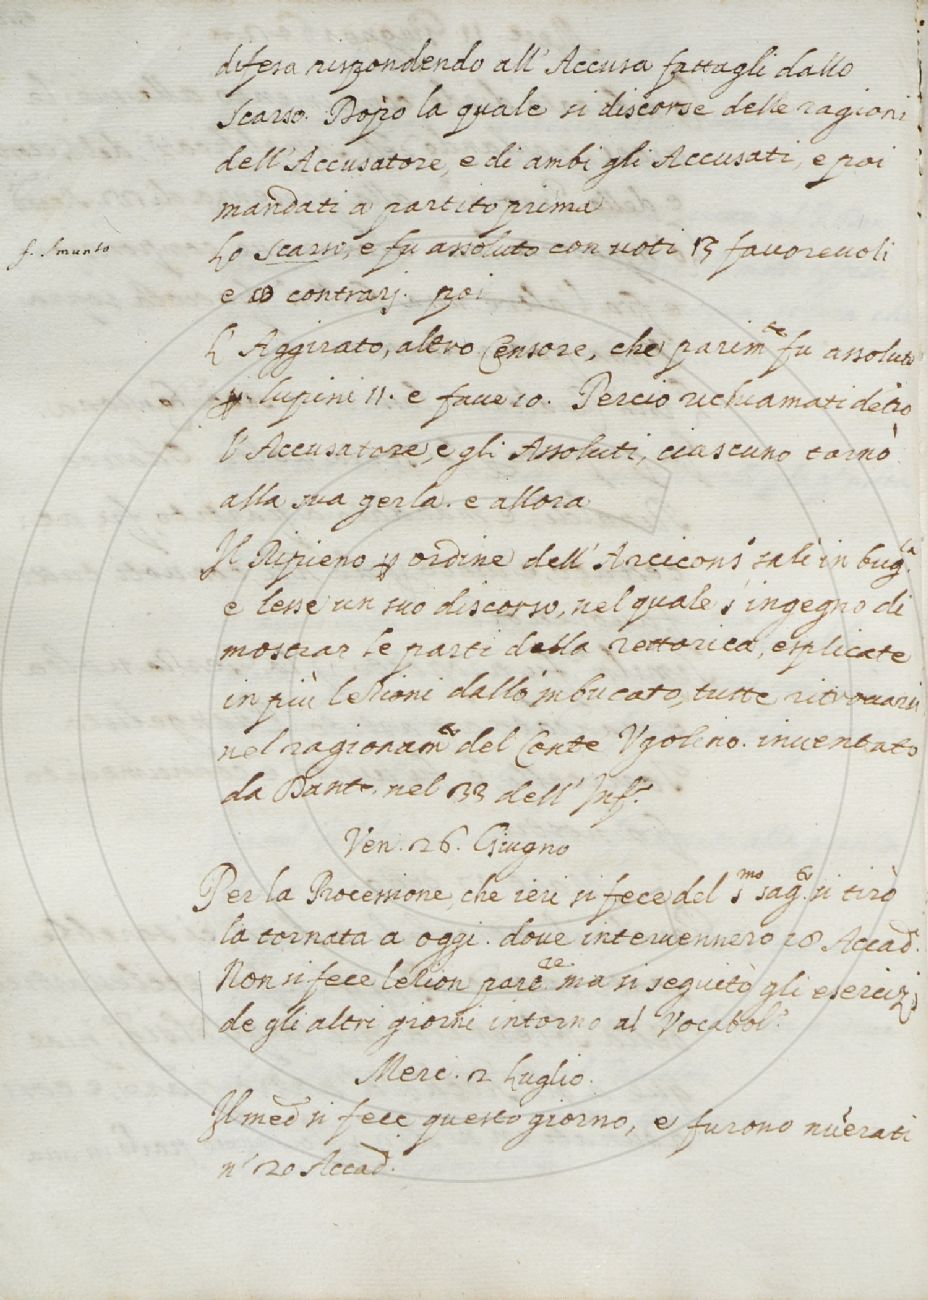 difesa rispondendo all' Accusa fattagli dallo
Scarso. Dopo la quale si discorse delle ragioni
dell' Accusatore, e di ambi gli Accusati, e poi
mandati a partito prima
f. Smunto
Lo Scarso, e fu assoluto con voti 13 favorevoli
e contrarj. poi
L' Aggirato, altro Censore, che parim.te fu assoluto
ꝑ. lupini 11. e fave 10. Percio richiamati détro
l' Accusatore, e gli Assoluti, ciascuno tornò
alla sua gerla. e allora
Il Ripieno ꝑ ordine dell' Arcicons.o salì in bug.la
e lesse un suo discorso, nel quale s' ingegno di
mostrar le parti della rettorica, esplicate
in più lezioni dallo 'mbucato, tutte ritrovarsi
nel ragionam.to del Conte Ugolino. inventato
da Dante. nel 33 dell' Inf.o
Ven. 26. Giugno
Per la Processione, che ieri si fece del S.mo Sag.to si tirò
la tornata a oggi. dove intervennero 18 Accad.
Non si fece lezion par.re ma si seguitò gli esercizj
de gli altri giorni intorno al Vocabol.o
Merc. 2 Luglio.
Il med. si fece questo giorno, e furono nuerati
n.o 20 Accad.